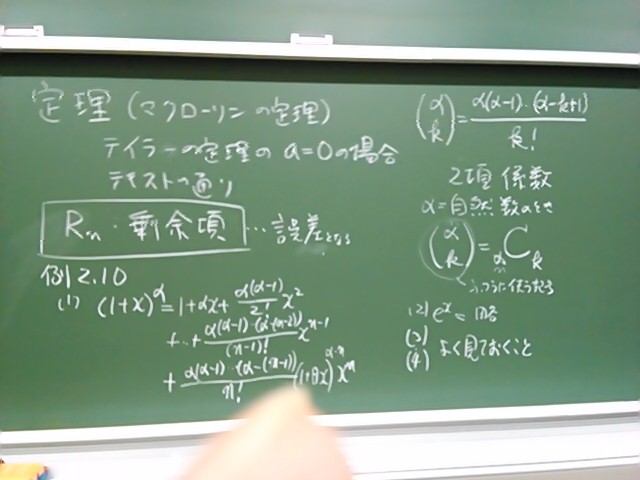 定理 (マクローリンの定理)
テイラーの定理の a=0の場合
テキストの通り
Rn・剰余項 … 誤差となる
例2.10
(1) (1+x)^α = 1+αx+ α(α-1)/2! x^2
+ ‥ + α(α-1)‥(α-(n-2))/(n-1)! x^(n-1)
+ α(α-1)‥(α-(n-1))/n! (1+θx)^(α-n) x^n
(α k) = α(α-1)‥(α-k+1)/k!
2項係数
α=自然数のとき
(α k) = αCk
ふつうに使うだろ
(2) e^x = 略
(3)
(4) よく見ておくこと